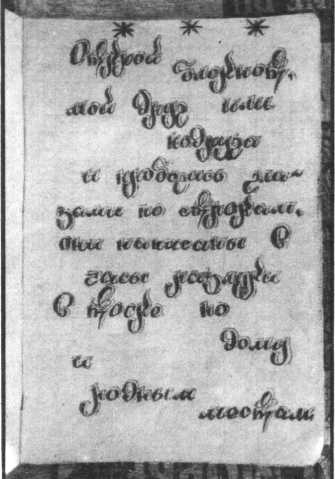 * * *
Открой
блокнот,
мой друг или
подруга
и пробегись гла-
зами по строкам,
они написаны в
часы разлуки
в тоске по
дому
и
родным
местам.